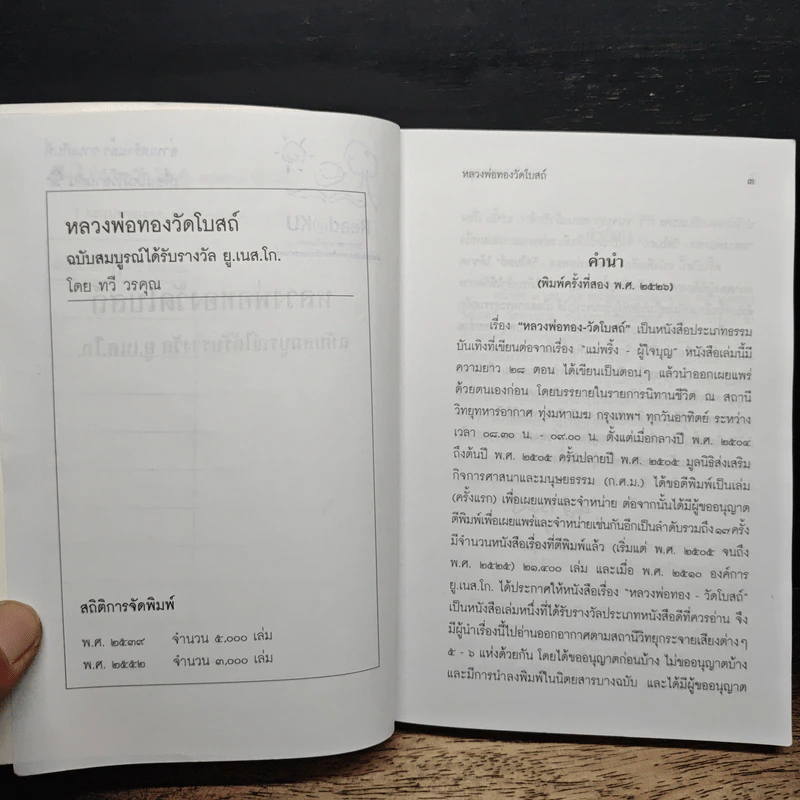 หลวงพ่อทองวัดโบสถ์
ฉบับสมบูรณ์ได้รับรางวัล ยู.เนส.โก.
โดย ทวี วรคุณ
สถิติการจัดพิมพ์
พ.ศ. ๒๕๓๙ จำนวน ๕,๐๐๐ เล่ม
พ.ศ. ๒๕๕๒ จำนวน ๓,๐๐๐ เล่ม
หลวงพ่อทองวัดโบสถ์ ๓
คำนำ
(พิมพ์ครั้งที่สอง พ.ศ. ๒๕๒๖)
เรื่อง "หลวงพ่อทอง-วัดโบสถ์" เป็นหนังสือประเภทธรรม
บันเทิงที่เขียนต่อจากเรื่อง "แม่พริ้ง - ผู้ใจบุญ" หนังสือเล่มนี้มี
ความยาว ๒๘ ตอน ได้เขียนเป็นตอนๆ แล้วนำออกเผยแพร่
ด้วยตนเองก่อน โดยบรรยายในรายการนิทานชีวิต ณ สถานี
วิทยุทหารอากาศ ทุ่งมหาเมฆ กรุงเทพฯ ทุกวันอาทิตย์ ระหว่าง
เวลา ๐๘.๓๐ น. - ๐๙.๐๐ น. ตั้งแต่เมื่อกลางปี พ.ศ. ๒๕๐๔
ถึงต้นปี พ.ศ. ๒๕๐๕ ครั้นปลายปี พ.ศ. ๒๕๐๕ มูลนิธิส่งเสริม
กิจการศาสนาและมนุษยธรรม (ก.ศ.ม.) ได้ขอตีพิมพ์เป็นเล่ม
(ครั้งแรก) เพื่อเผยแพร่และจำหน่าย ต่อจากนั้นได้มีผู้ขออนุญาต
ตีพิมพ์เพื่อเผยแพร่และจำหน่ายเช่นกันอีกเป็นลำดับรวมถึง๑๗ครั้ง
มีจำนวนหนังสือเรื่องที่ตีพิมพ์แล้ว (เริ่มแต่ พ.ศ. ๒๕๐๕ จนถึง
พ.ศ. ๒๕๒๕) ๒๑,๔๐๐ เล่ม และเมื่อ พ.ศ. ๒๕๑๐ องค์การ
ยู.เนส.โก. ได้ประกาศให้หนังสือเรื่อง "หลวงพ่อทอง - วัดโบสถ์"
เป็นหนังสือเล่มหนึ่งที่ได้รับรางวัลประเภทหนังสือดีที่ควรอ่าน จึง
มีผู้นำเรื่องนี้ไปอ่านออกอากาศตามสถานีวิทยุกระจายเสียงต่างๆ
๕ - ๖ แห่งด้วยกัน โดยได้ขออนุญาตก่อนบ้าง ไม่ขออนุญาตบ้าง
และมีการนำลงพิมพ์ในนิตยสารบางฉบับ และได้มีผู้ขออนุญาต